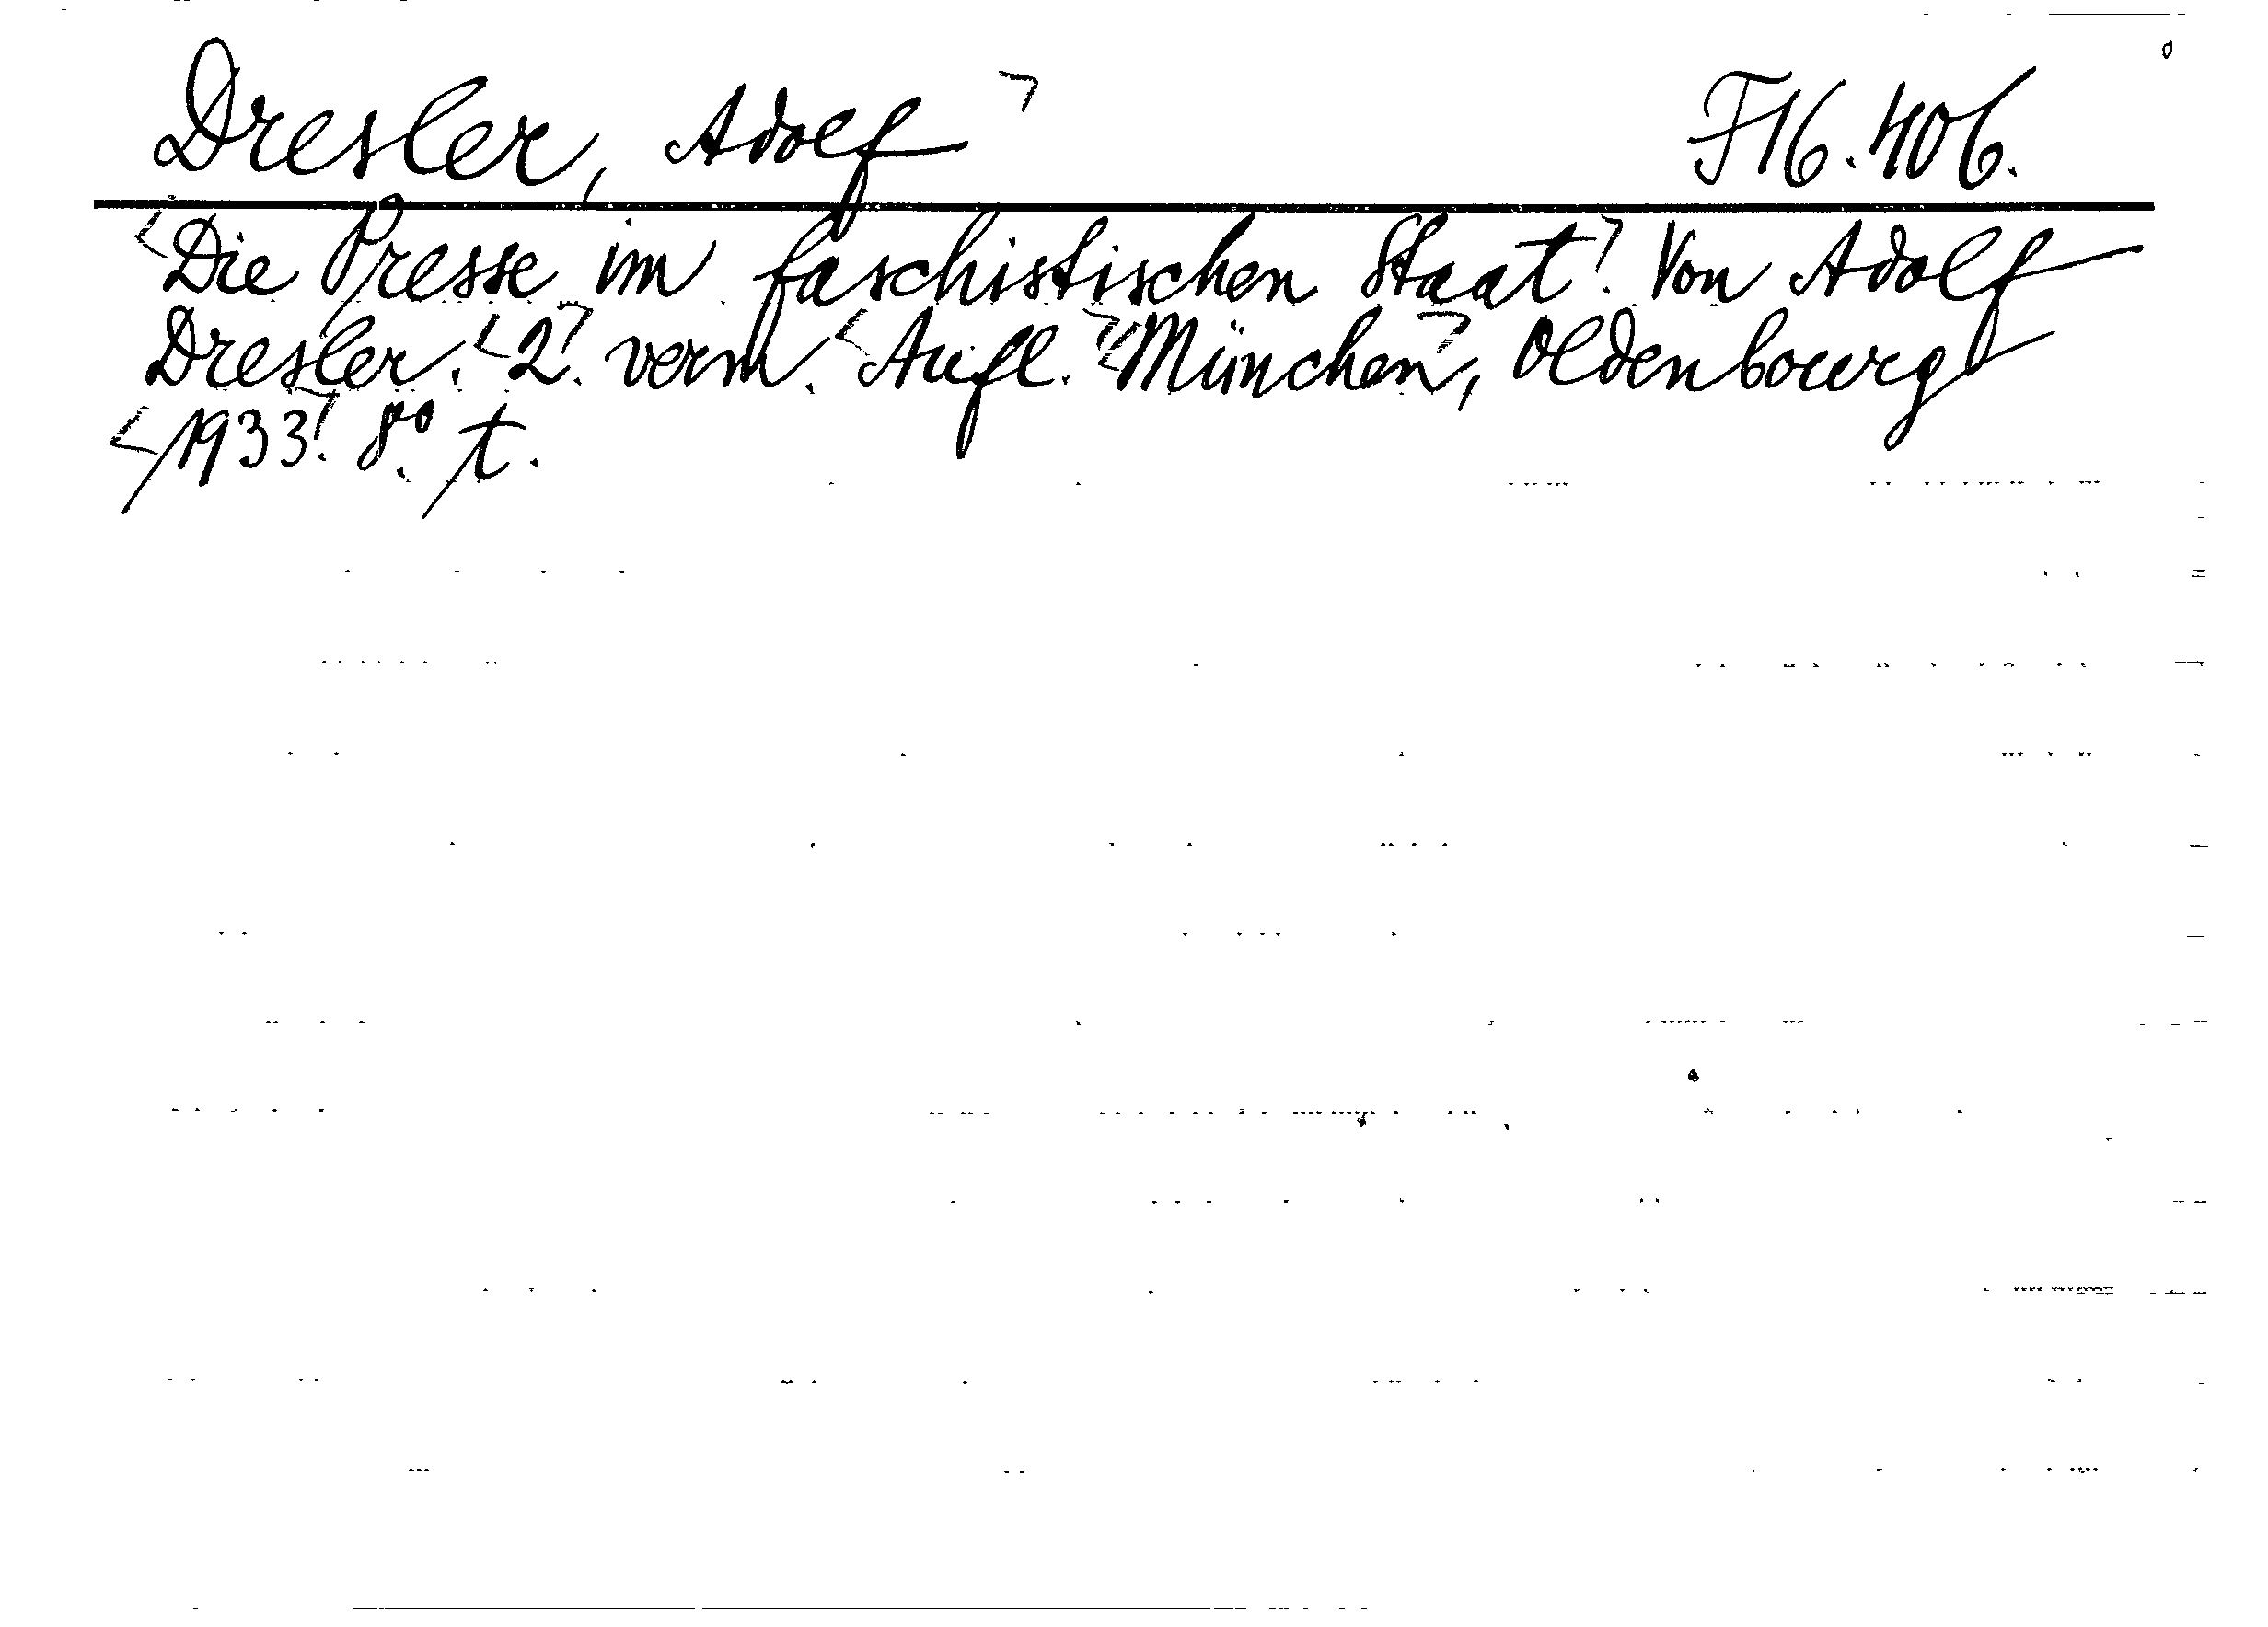 Dresler, Adolf F16.406.
Die Presse im faschistischen Staat. Von Adolf
Dresler. 2. verm. Aufl. München, Oldenbourg
1933. 8° t.